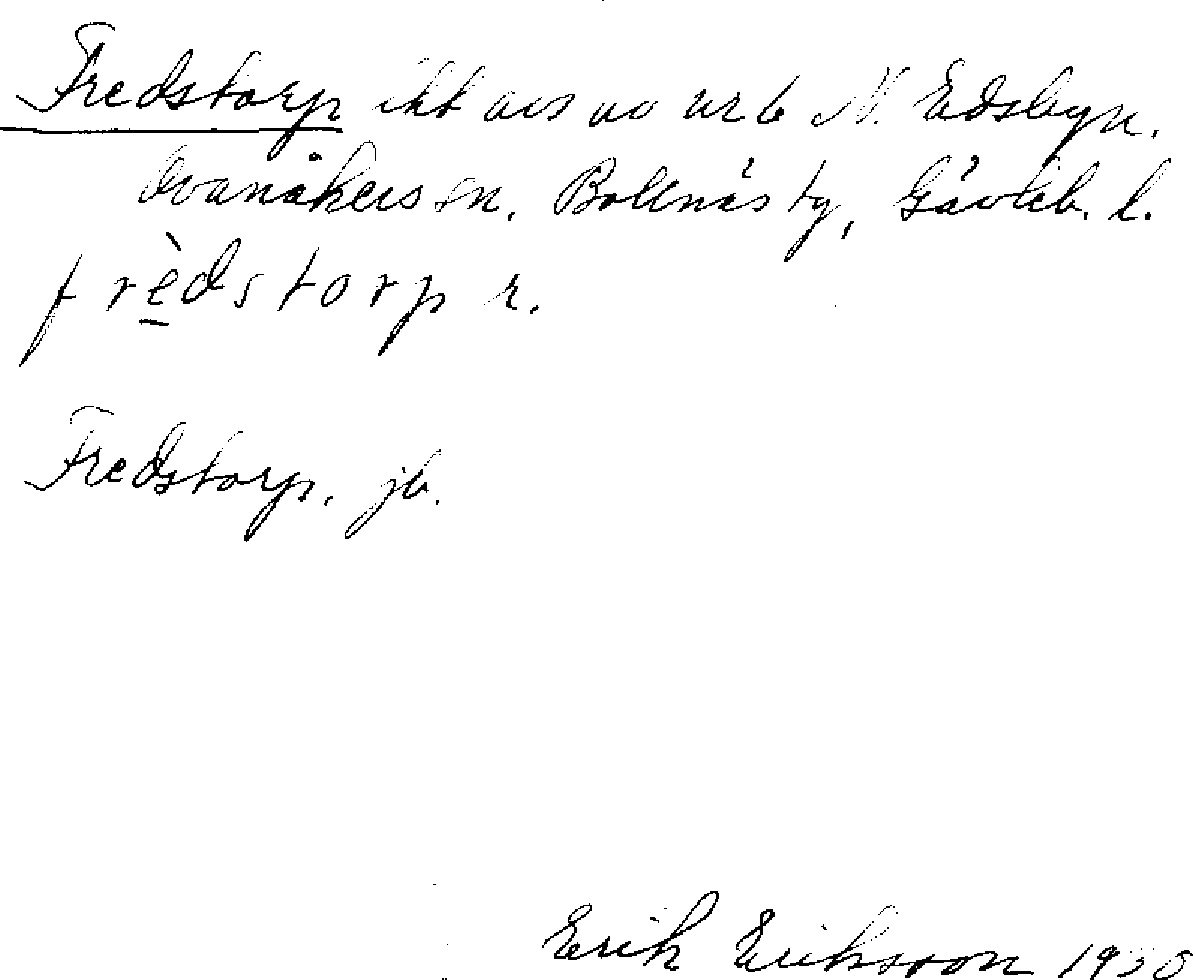 Fredstorp ikt avs av nr 6 N. Edsbyn.
Ovanåkers sn. Bollnäs tg, Gävleb. l.
frèdstorp r.
Fredstorp. jb.
Erik Eriksson 1930